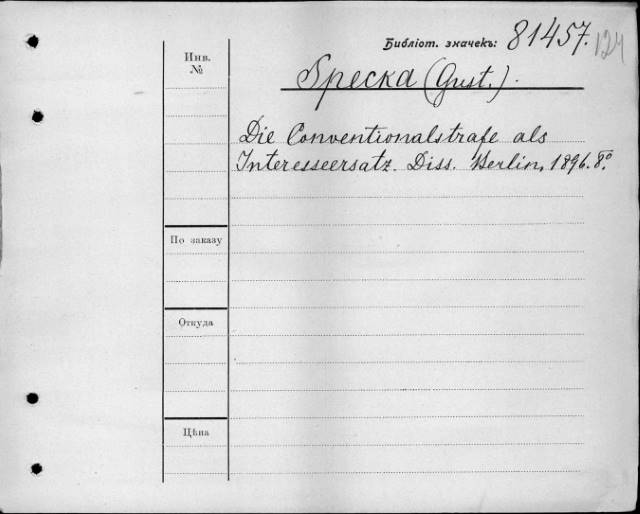 Библіот. значекъ: 81457. 124
Инв.
№
Specka (Gust.).
Die Conventionalstrafe als
Interesseersatz. Diss. Berlin, 1896. 8º.
По заказу
Откуда
Цѣна